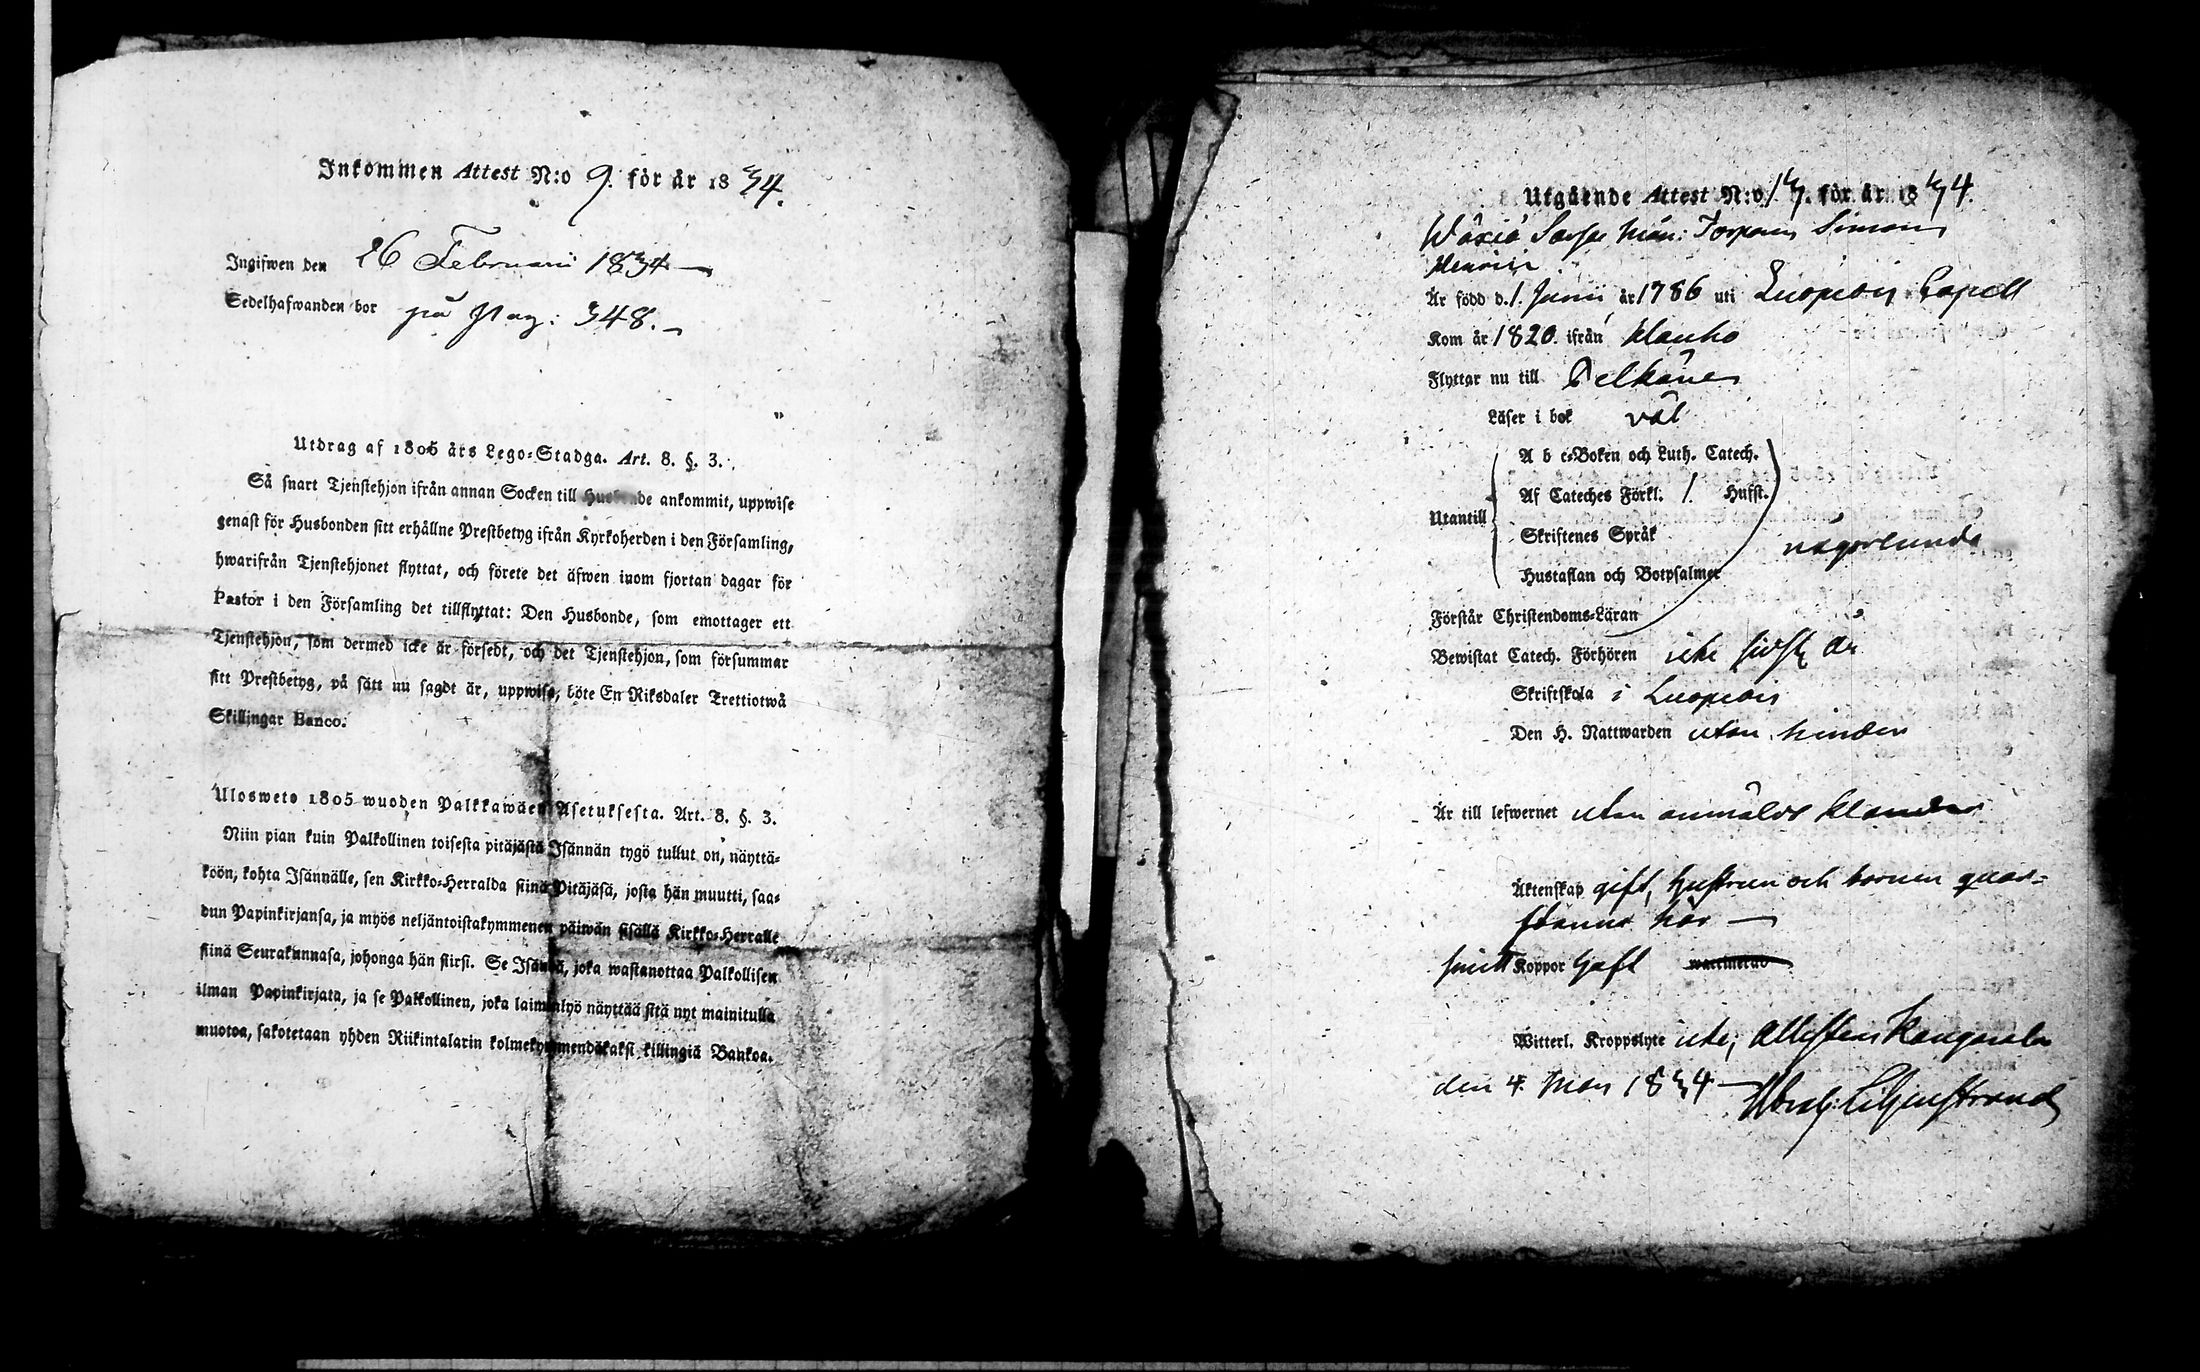 Inkommen Attest N:o 9. för år 1834.
Ingifwen den 26 Februarii 1834
Sedelhafwanden bor på Pag: 348.
Utdrag af 1805 års Lego-Stadga. Art. 8. §. 3.
Så snart Tjenstehjon ifrån annan Socken till Husbonde ankommit, uppwise
genast för Husbonden sitt erhållne Prestbetyg ifrån Kyrkoherden i den Församling,
hwarifrån Tjenstehjonet flyttat, och förete det äfwen inom fjortan dagar för
Pastor i den Församling det tillflyttat: Den Husbonde, som emottager ett
Tjenstehjon, som dermed icke är försedt, och det Tjenstehjon, som försummar
sitt Prestbetyg, på sätt nu sagdt är, uppwisa, böte En Riksdaler Trettiotwå
Skillingar Banco.
Ulosweto 1805 wuoden Palkkawäen Asetuksesta. Art. 8. §. 3.
Niin pian kuin Palkollinen toisesta pitäjästä Isännän tygö tullut on, näyttä-
köön, kohta Isännälle, sen Kirkko-Herralda siinä Pitäjäsä, josta hän muutti, saa-
dun Papinkirjansa, ja myös neljäntoistakymmenen päiwän sisällä Kirkko-Herralle
siinä Seurakunnasa, johonga hän siirsi. Se Isändä, joka wastanottaa Palkollisen
ilman Papinkirjata, ja se Palkollinen, joka laiminlyö näyttää sitä nyt mainitulla
muotoa, sakotetaan yhden Riikintalarin kolmekymmendäkaksi killingiä Bankoa.
Utgående Attest N:o 13. för år 1834.
Torparen Simon
Henrici
Är född d. 1. Junii år 1786 uti Luopiois Capell
Kom år 1820. ifrån Hauho
Flyttar nu till Pelkäne
Läser i bok väl
A b c-Boken och Luth. Catech.
Af Cateches Förkl. 1. Hufst.
Utantill
Skriftenes Språk
någorlunda
Hustaflan och Botpsalmer
Förstår Christendoms-Läran
Bewistat Catech. Förhören icke sidsta år
Skriftskola i Luopiois
Den H. Nattwarden utan hinder
Är till lefwernet utan anmäldt klander
Äktenskap gift, hustrun och barnen quar-
stanna här
Koppor haft
Witterl. Kroppslyte icke; Attesteras Kangasala
den 4. Mars 1834 Liljenstrand